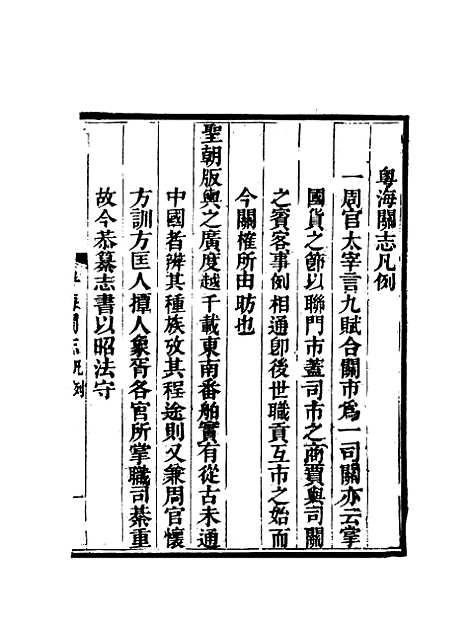 粵海關志凡例
一周官太宰言九賦合關市爲一司關亦云掌
國貨之節以聯門市蓋司市之商賈與司關
之賓客事例相通卽後世職貢互市之始而
今關榷所由昉也
聖朝版輿之廣度越千載東南番舶實有從古未通
中國者辨其種族攷其程途則又兼周官懷
方訓方匡人撢人象胥各官所掌職司綦重
故今恭纂志書以昭法守
海關志凡例
一